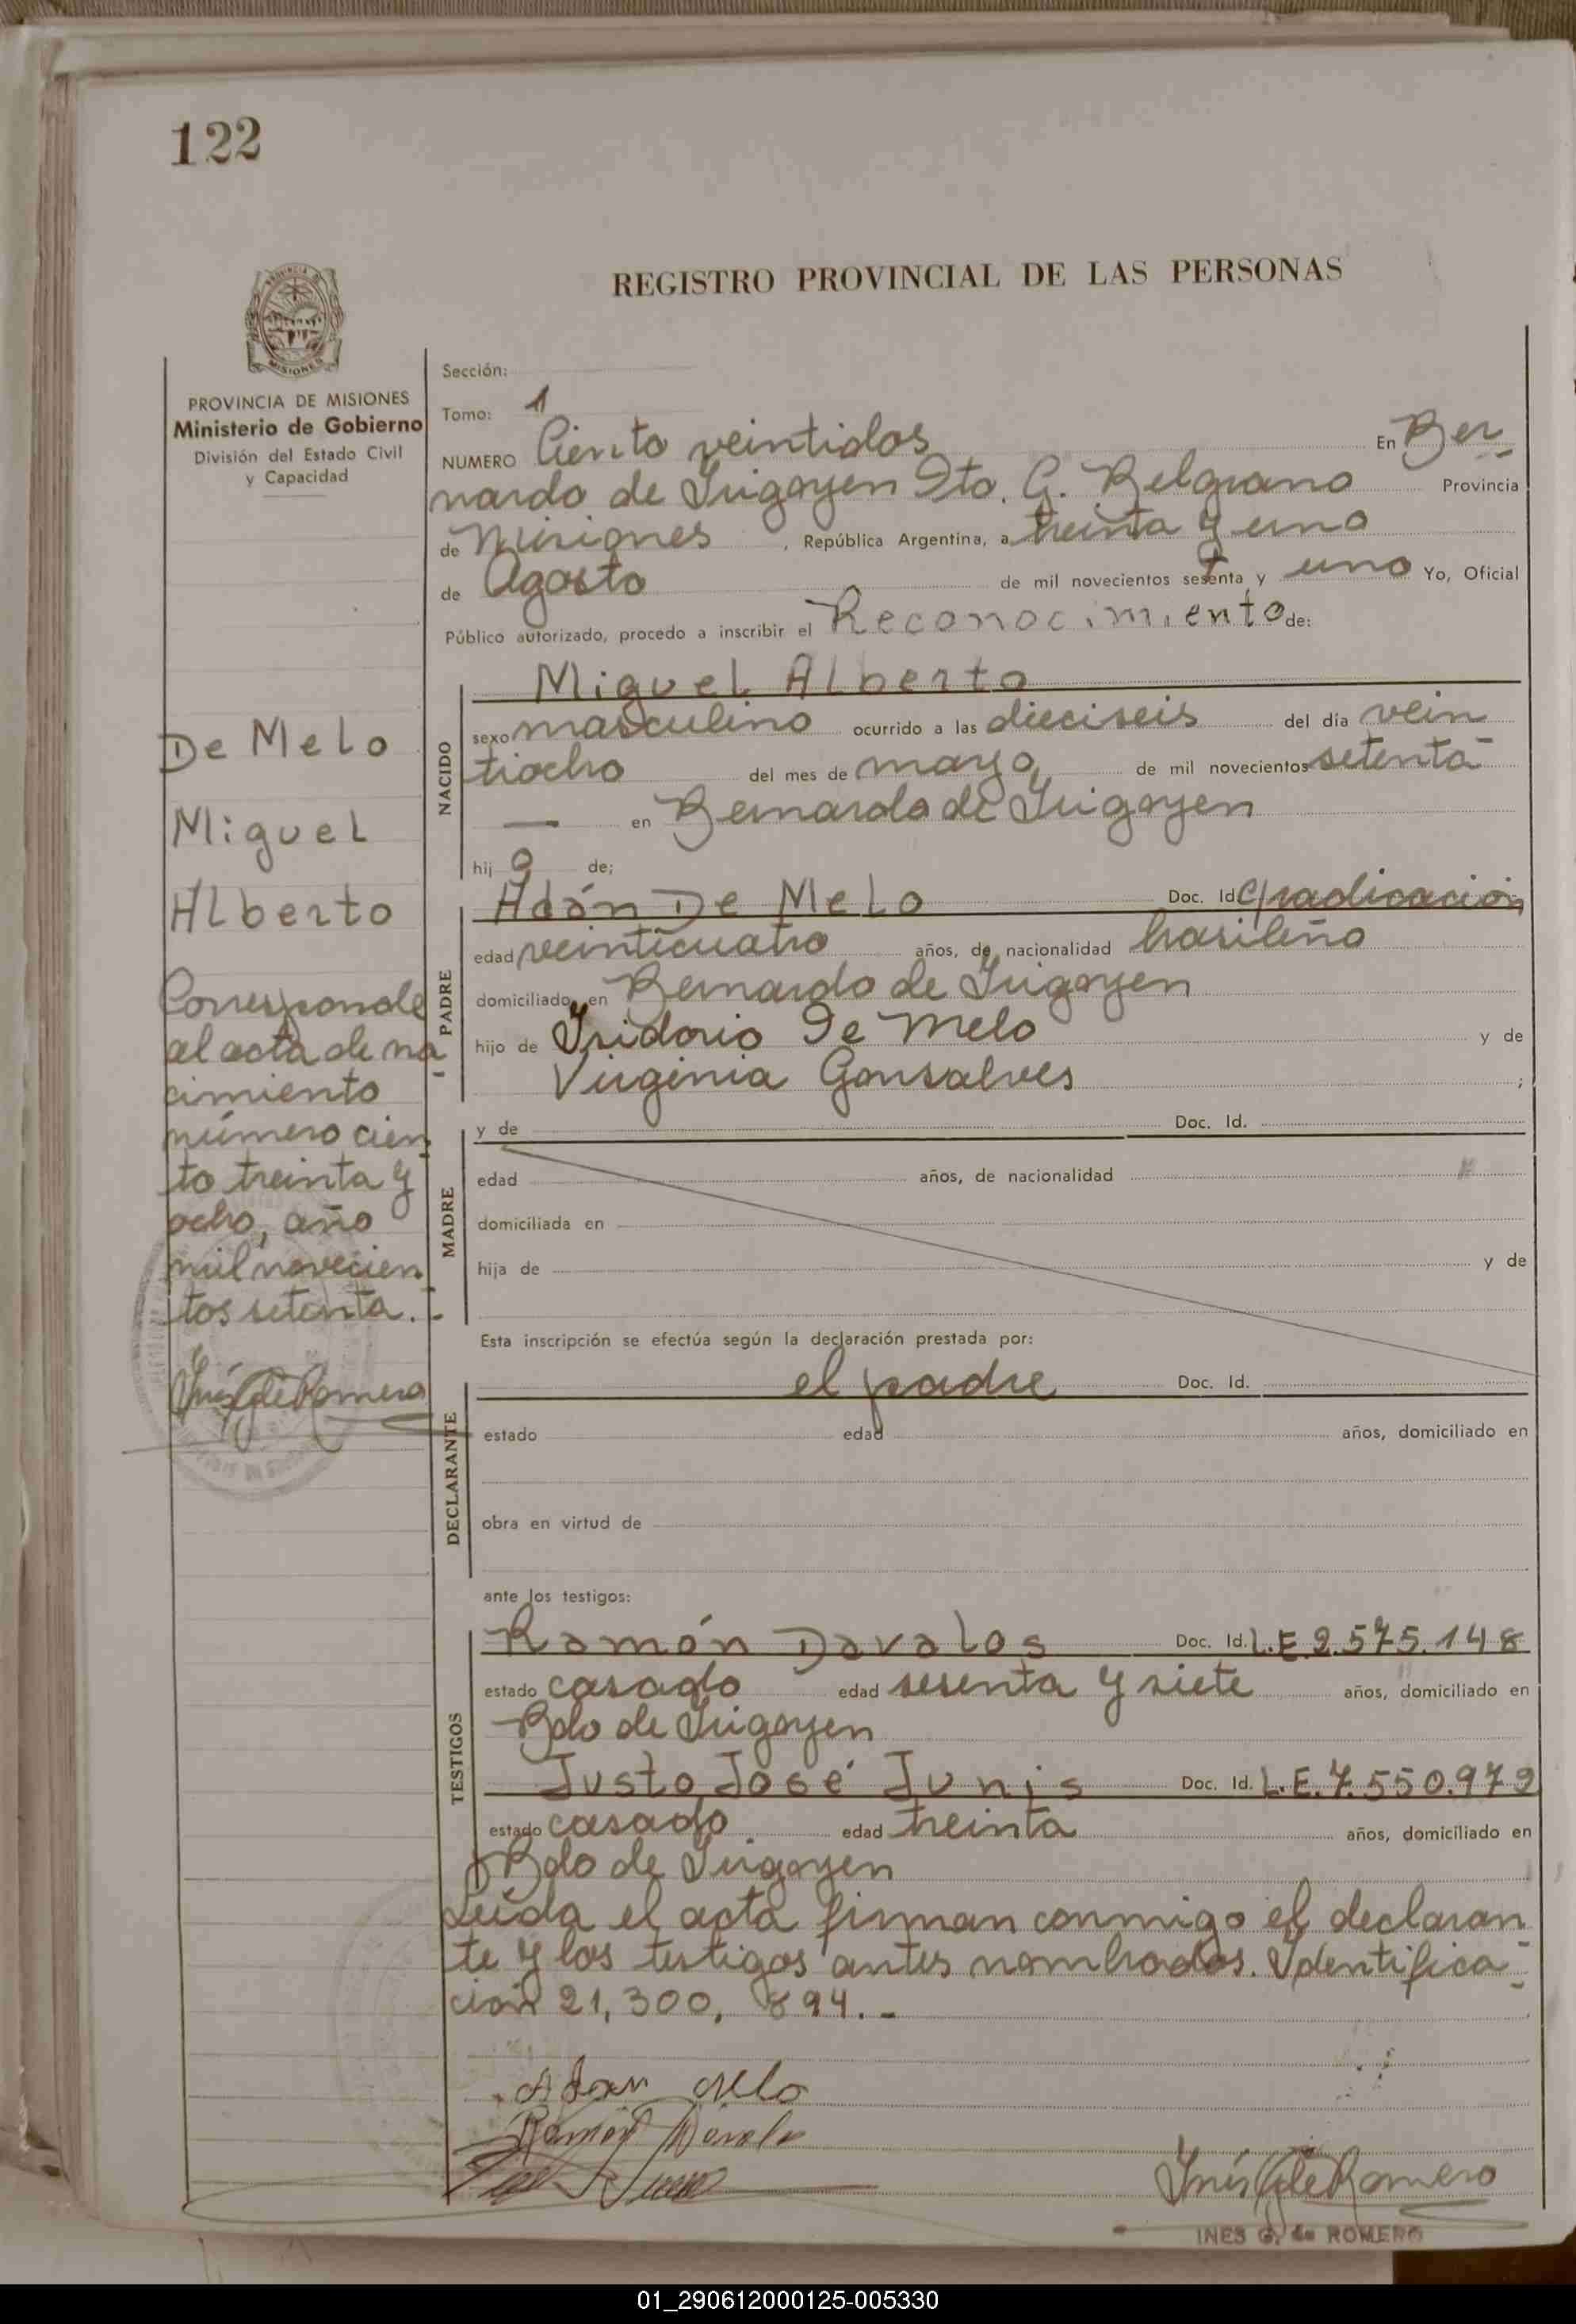 122
REGISTRO PROVINCIAL DE LAS PERSONAS
PROVINCIA DE MISIONES
Ministerio de Gobierno
División del Estado Civil
y Capacidad
Sección:
Tomo: 1
NUMERO Ciento veintidos En Ber
nardo de Irigoyen Dto. G. Belgrano Provincia
de Misiones, República Argentina, a treinta y uno
de Agosto de mil novecientos setenta y uno Yo, Oficial
Público autorizado, procedo a inscribir el Reconocimiento de:
NACIDO
Miguel Alberto
sexo masculino ocurrido a las dieciseis del día vein
tiocho del mes de mayo de mil novecientos setenta-
— en Bernardo de Irigoyen
hijo de;
PADRE
Adán De Melo Doc. Id. C/radicación
edad veinticuatro años, de nacionalidad brasileño
domiciliado en Bernardo de Irigoyen
hijo de Isidorio De Melo y de
Virginia Gonsalves ;
MADRE
y de Doc. Id.
edad años, de nacionalidad
domiciliada en
hija de y de
Esta inscripción se efectúa según la declaración prestada por:
DECLARANTE
el padre Doc. Id.
estado edad años, domiciliado en
obra en virtud de
ante los testigos:
TESTIGOS
Ramón Davalos Doc. Id. L.E 2.575.148
estado casado edad sesenta y siete años, domiciliado en
Bdo de Irigoyen
Justo José Junis Doc. Id. L.E.7.550.972
estado casado edad treinta años, domiciliado en
Bdo de Irigoyen
Leída el acta firman conmigo el declaran
te y los testigos antes nombrados. Identifica-
ción 21,300, 894.-
De Melo
Miguel
Alberto
Corresponde
al acta de na
cimiento
número cien
to treinta y
ocho, año
mil novecien
tos setenta.-
Inés G de Romero
Adan Melo
Ramón Davalo
Inés G de Romero
INES G. de ROMERO
01_290612000125-005330